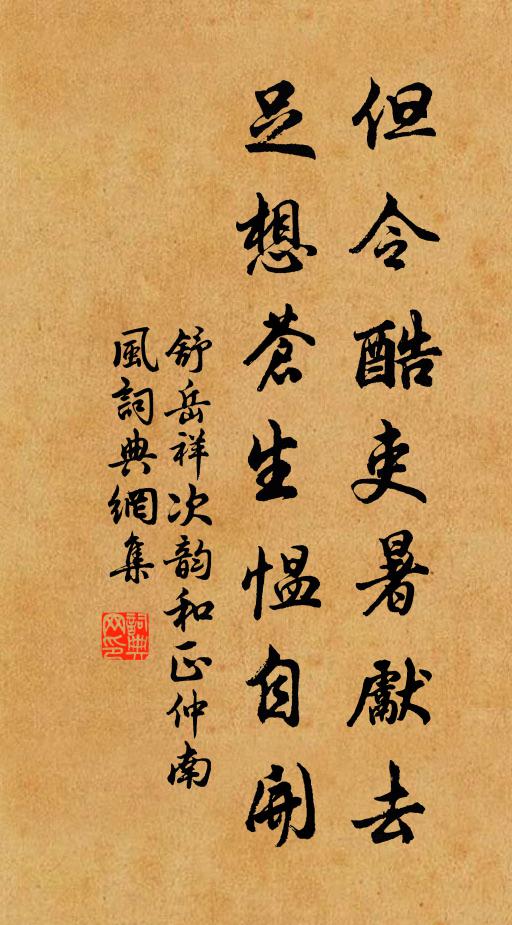 但令酷吏暑獻去
足想蒼生愠自開
舒岳祥次韵和正仲南
風詞典網集
詞典
网印